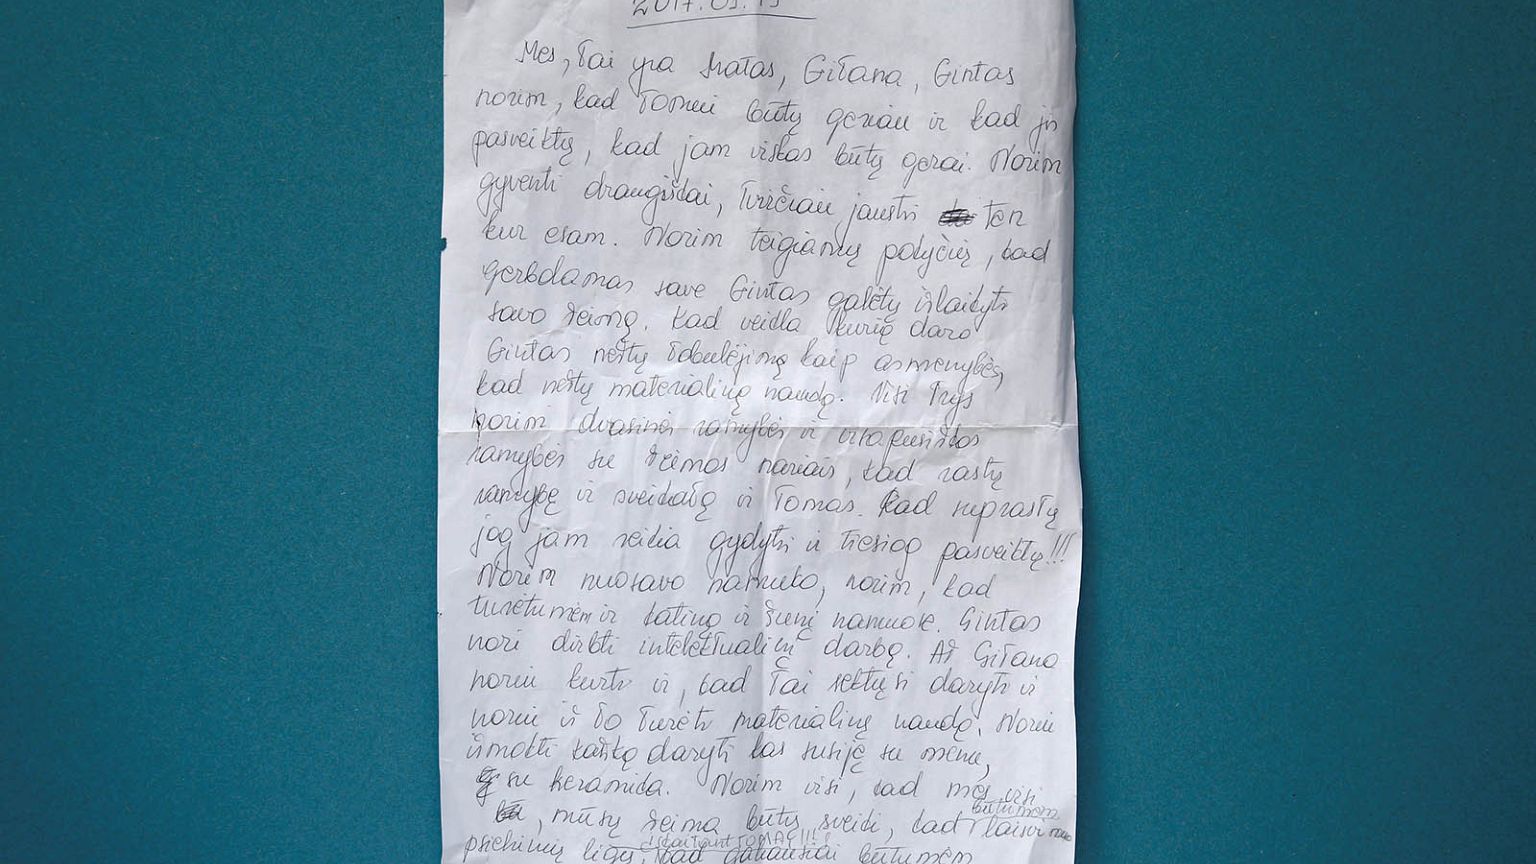 2017.03.13
Mes, Tai yra Matas, Gitana, Gintas
norim, kad Tomui būtų geriau ir kad jis
pasveiktų, kad jam viskas būtų gerai. Norim
gyventi draugiškai, Tvirčiau jaustis ten
kur esam. Norim teigiamų pokyčių, kad
gerbdamas save Gintas galėtų išlaikyti
savo šeimą. Kad veikla kurią daro
Gintas neštų tobulėjimą kaip asmenybės,
kad neštų materialinę naudą. Visi Trys
norim dvasinės ramybės ir visapusiškos
ramybės su šeimos nariais, kad rastų
ramybę ir sveikatą ir Tomas. Kad suprastų
jog jam reikia gydytis ir tiesiog pasveiktų!!!
Norim nuosavo namuko, norim, kad
turėtumėm ir katiną ir šunį namuose. Gintas
nori dirbti intelektualinį darbą. Aš Gitana
noriu kurti ir, kad Tai sektųsi daryti ir
noriu iš to turėti materialinę naudą. Noriu
išmokti kažką daryti kas susiję su menu,
su keramika. Norim visi, kad mes visi
, mūsų šeima būtų sveiki, kad būtumėm laisvi nuo
psichinių ligų, įskaitant TOMĄ!!! kad galiausiai būtumėm